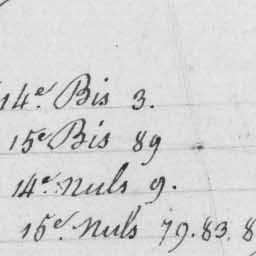 14e. Bis 3.
15e Bis 89
14e. nuls 9.
15e. nuls 79. 83. 8